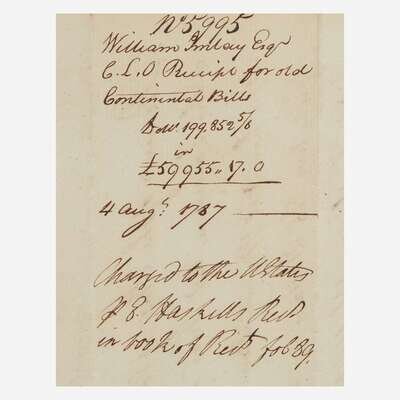 No 5995
William Imlay Esqr
C.L.O Receipt for old
Continental Bills
Dolls. 199.852 5/6
in
£59955,, 17. 0
4 Augt. 1787
Charged to the UStates
P E. Haskells Rect
in book of Rects. fol 89.